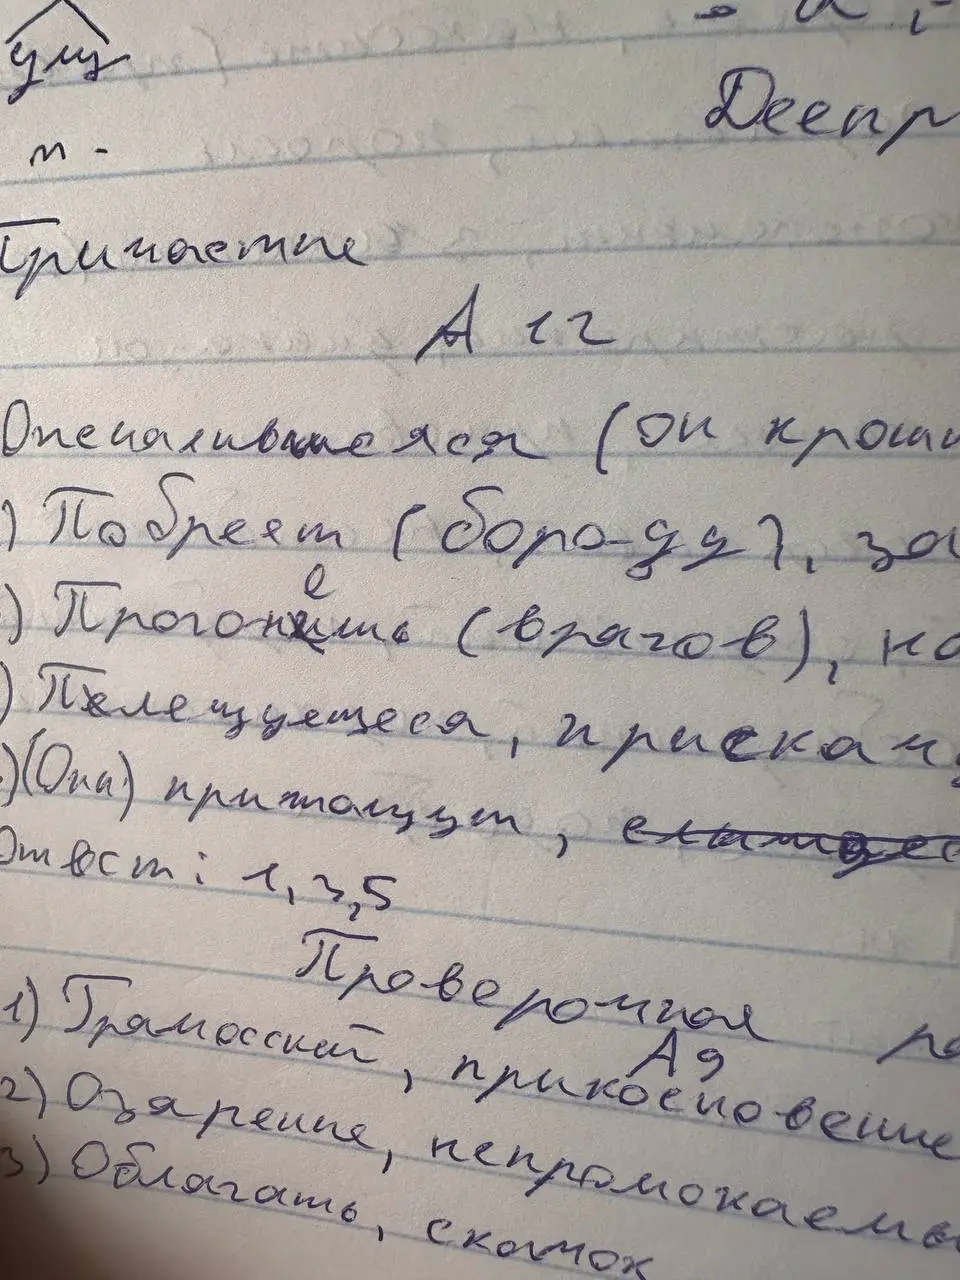 ущ
т -
Деепр
Причастие
А 12
Опечалившеяся (он кроши
) Побреет (боро-ду), за
) Прогонешь (врагов), но
) Пелещущееся,
) (Они) примолцут,
Ответ: 1, 3, 5
Проверочная ра
А 9
1) Грамосский, прикосновение
2) Озарение, непромокаемы
3) Облагать, скочок